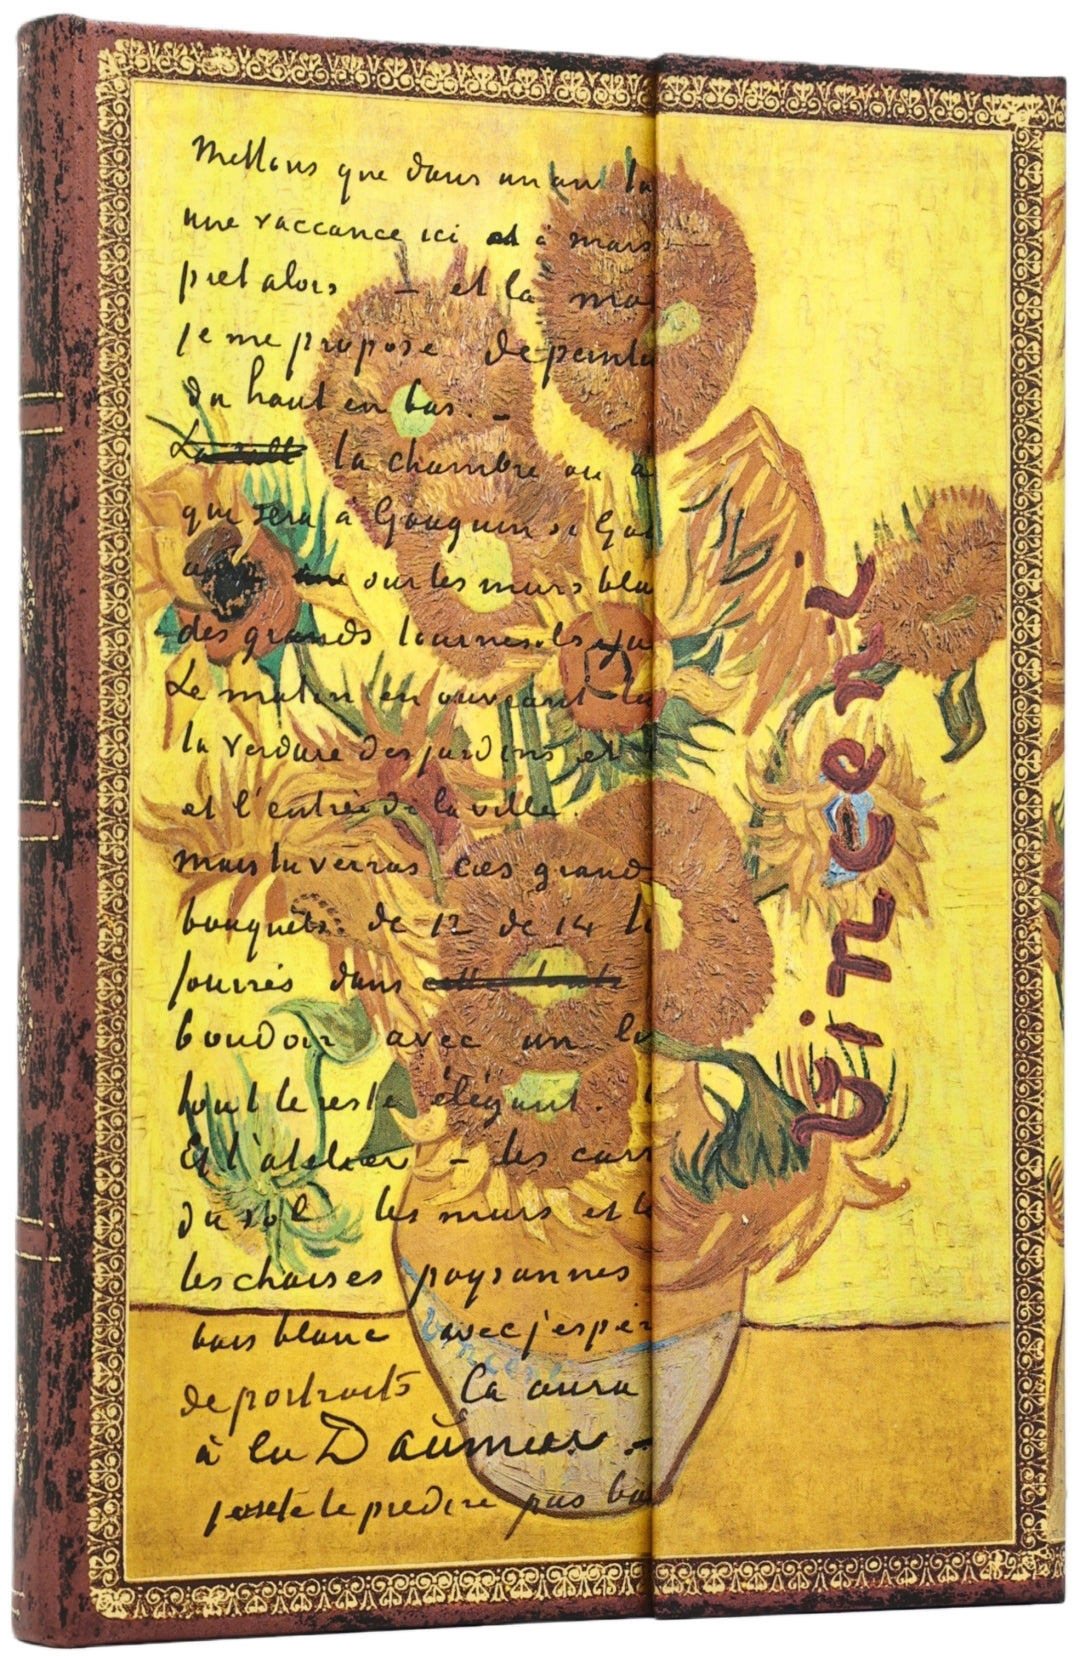 Mettons que dans un an tu
une vaccance ici et à mars
pret alors — et la
je me propose de peindre
du haut en bas. —
la chambre ou a
que sera à Gauguin si Gau
sur les murs bla
des grands tournesols
Le matin en ouvrant la
la verdure des jardins et
et l'entrée de la ville.
mais tu verras ces grand
bouquets. de 12 de 14 t
fourrés dans cette toute
boudoir avec un l
tout le reste élégant.
Et l'atelier – les carr
du sol les murs et l
les chaises paysannes
bois blanc avec j'espèr
de portraits Ca aura
à la Daumier –
je te le predire pas ba
Vincent
Vincent